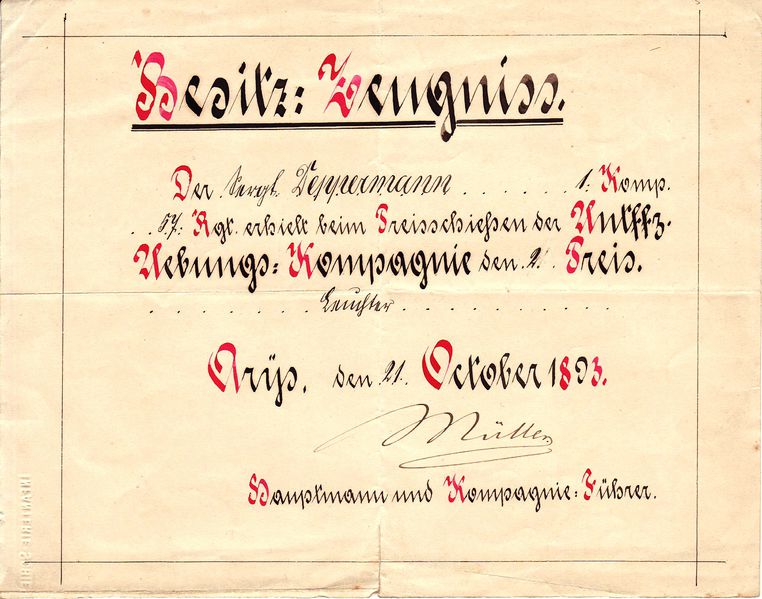 Besitz: Zeugniss.
Der Sergt. Deppermann . . . . . . 1: Komp.
. . 57: Rgt. erhielt beim Preisschießen der Untffz.
Uebungs: Kompagnie den 2. Preis.
. . . . . . . Leuchter . . . . . . . . . . .
Arys. den 21. October 1893.
Müller
Hauptmann und Kompagnie: Führer.